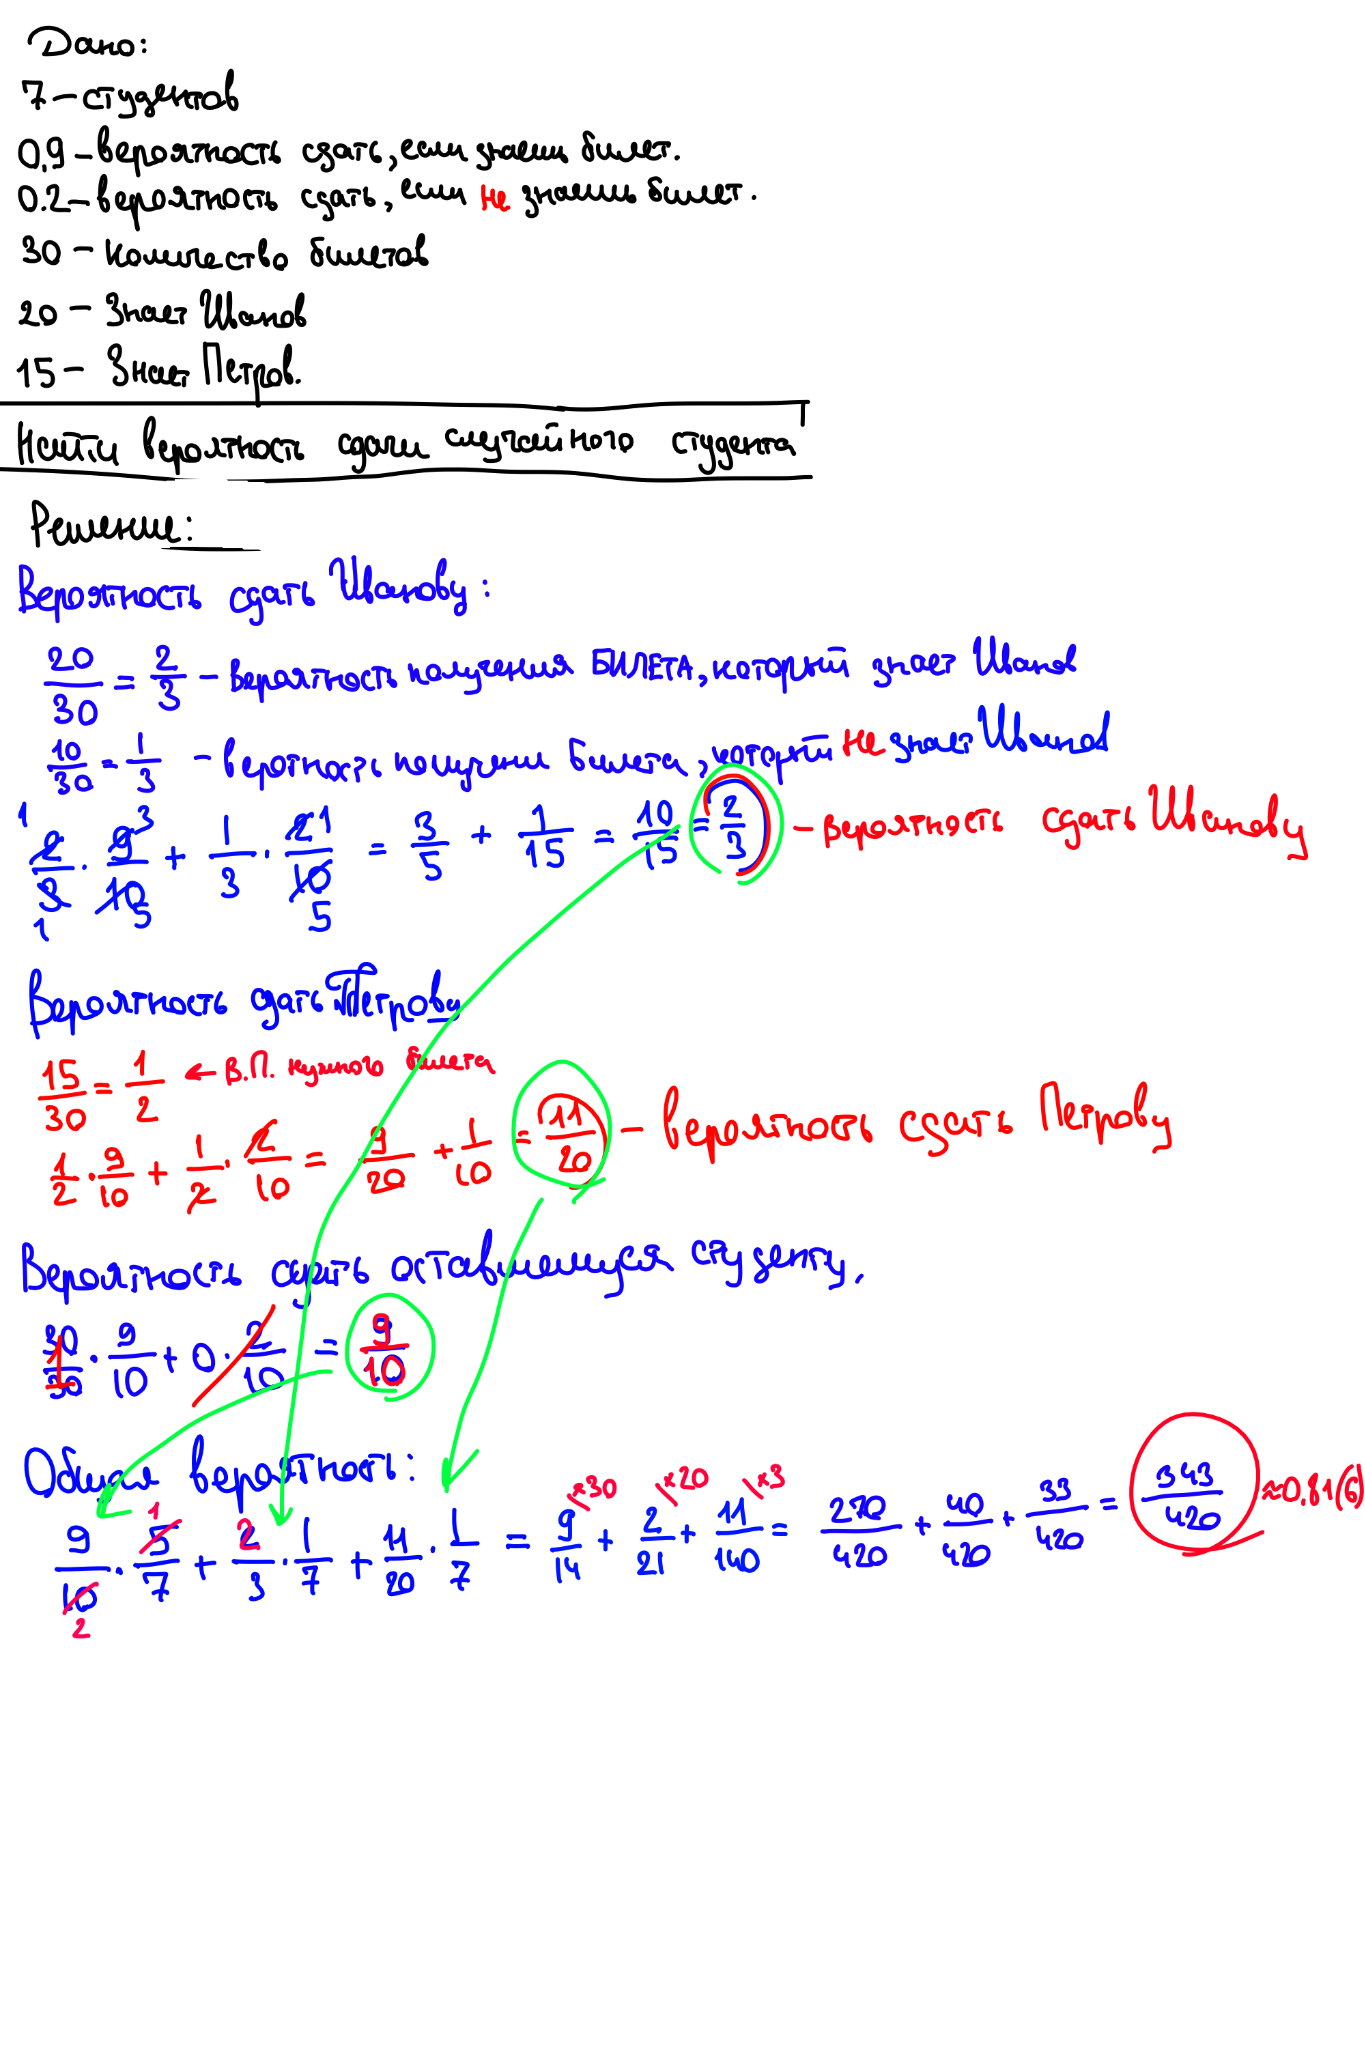 Дано:
7 – студентов
0,9 – вероятность сдать, если знаешь билет.
0.2 – вероятность сдать, если не знаешь билет.
30 – количество билетов
20 – Знает Иванов
15 – Знает Петров.
Найти вероятность сдачи случайного студента
Решение:
Вероятность сдать Иванову:
20/30 = 2/3 – вероятность получения БИЛЕТА, который знает Иванов
10/30 = 1/3 – вероятность получени билета, который не знает Иванов
2/3 · 9/10 + 1/3 · 2/10 = 3/5 + 1/15 = 10/15 = 2/3 – вероятность сдать Иванову
1 3 1
1 5 5
Вероятность сдать Петрову
15/30 = 1/2 ← В.П. нужного билета
1/2 · 9/10 + 1/2 · 2/10 = 9/20 + 1/10 = 11/20 – вероятность сдать Петрову
Вероятность сдать оставшемуся студенту.
30/30 · 9/10 + 0 · 2/10 = 9/10
1
Общая вероятность:
*30 *20 *3
9/10 · 5/7 + 2/3 · 1/7 + 11/20 · 1/7 = 9/14 + 2/21 + 11/140 = 270/420 + 40/420 + 33/420 = 343/420 ≈ 0.81(6)
1
2